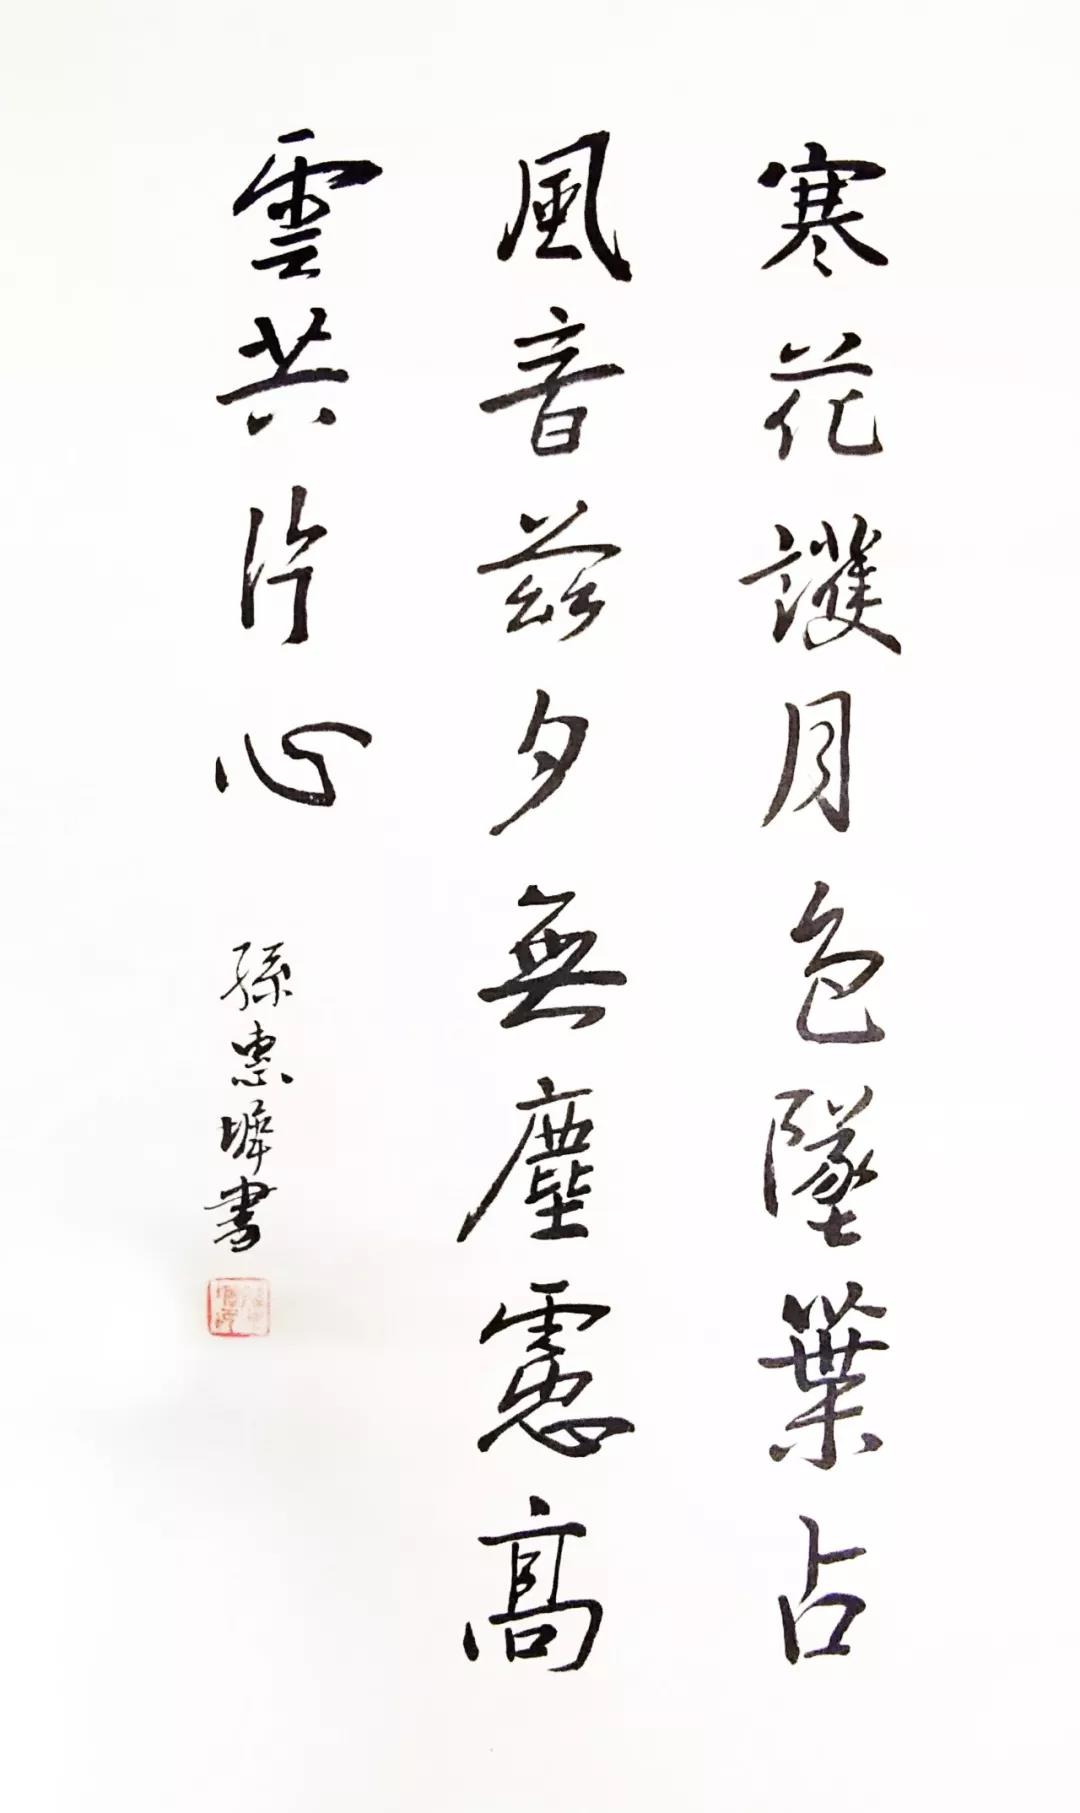 寒花護月色墜葉占
風音茲夕無塵慮高
雲共片心
孫惠墀書